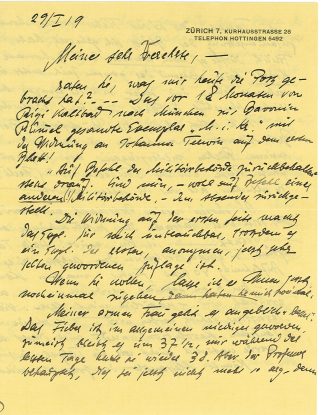 29/I 19
ZÜRICH 7, KURHAUSSTRASSE 28
TELEPHON HOTTINGEN 6492
Meine sehr Verehrte, —
raten Sie, was mir heute die Post ge-
bracht hat? — Das vor 18 Monaten von
Rigi Kaltbad nach München zu Baronin
gesandte Exemplar "M. i. N." mit
der Widmung an Johannes auf dem ersten
Blatt!
"Auf Befehl der Militärbehörde zurückbehalten"
stand drauf. Und nun, — wohl auf Befehl einer
anderen!! Militärbehörde — dem Absender zurückge-
stellt.
Die Widmung auf der ersten Seite macht
das Expl. für mich unbrauchbar, trotzdem es
ein Expl. der ersten, anonymen, jetzt sehr
selten gewordenen Auflage ist.
Wenn Sie wollen, lasse ich es Ihnen jetzt
nocheinmal zugehen
Meiner armen Frau geht es angeblich besser.
Das Fieber ist im allgemeinen niedriger geworden,
zumeist bleibt es um 37½, nur während der
letzten Tage hatte sie wieder 38. Aber der Professor
behauptet, das sei jetzt nicht mehr so arg, denn